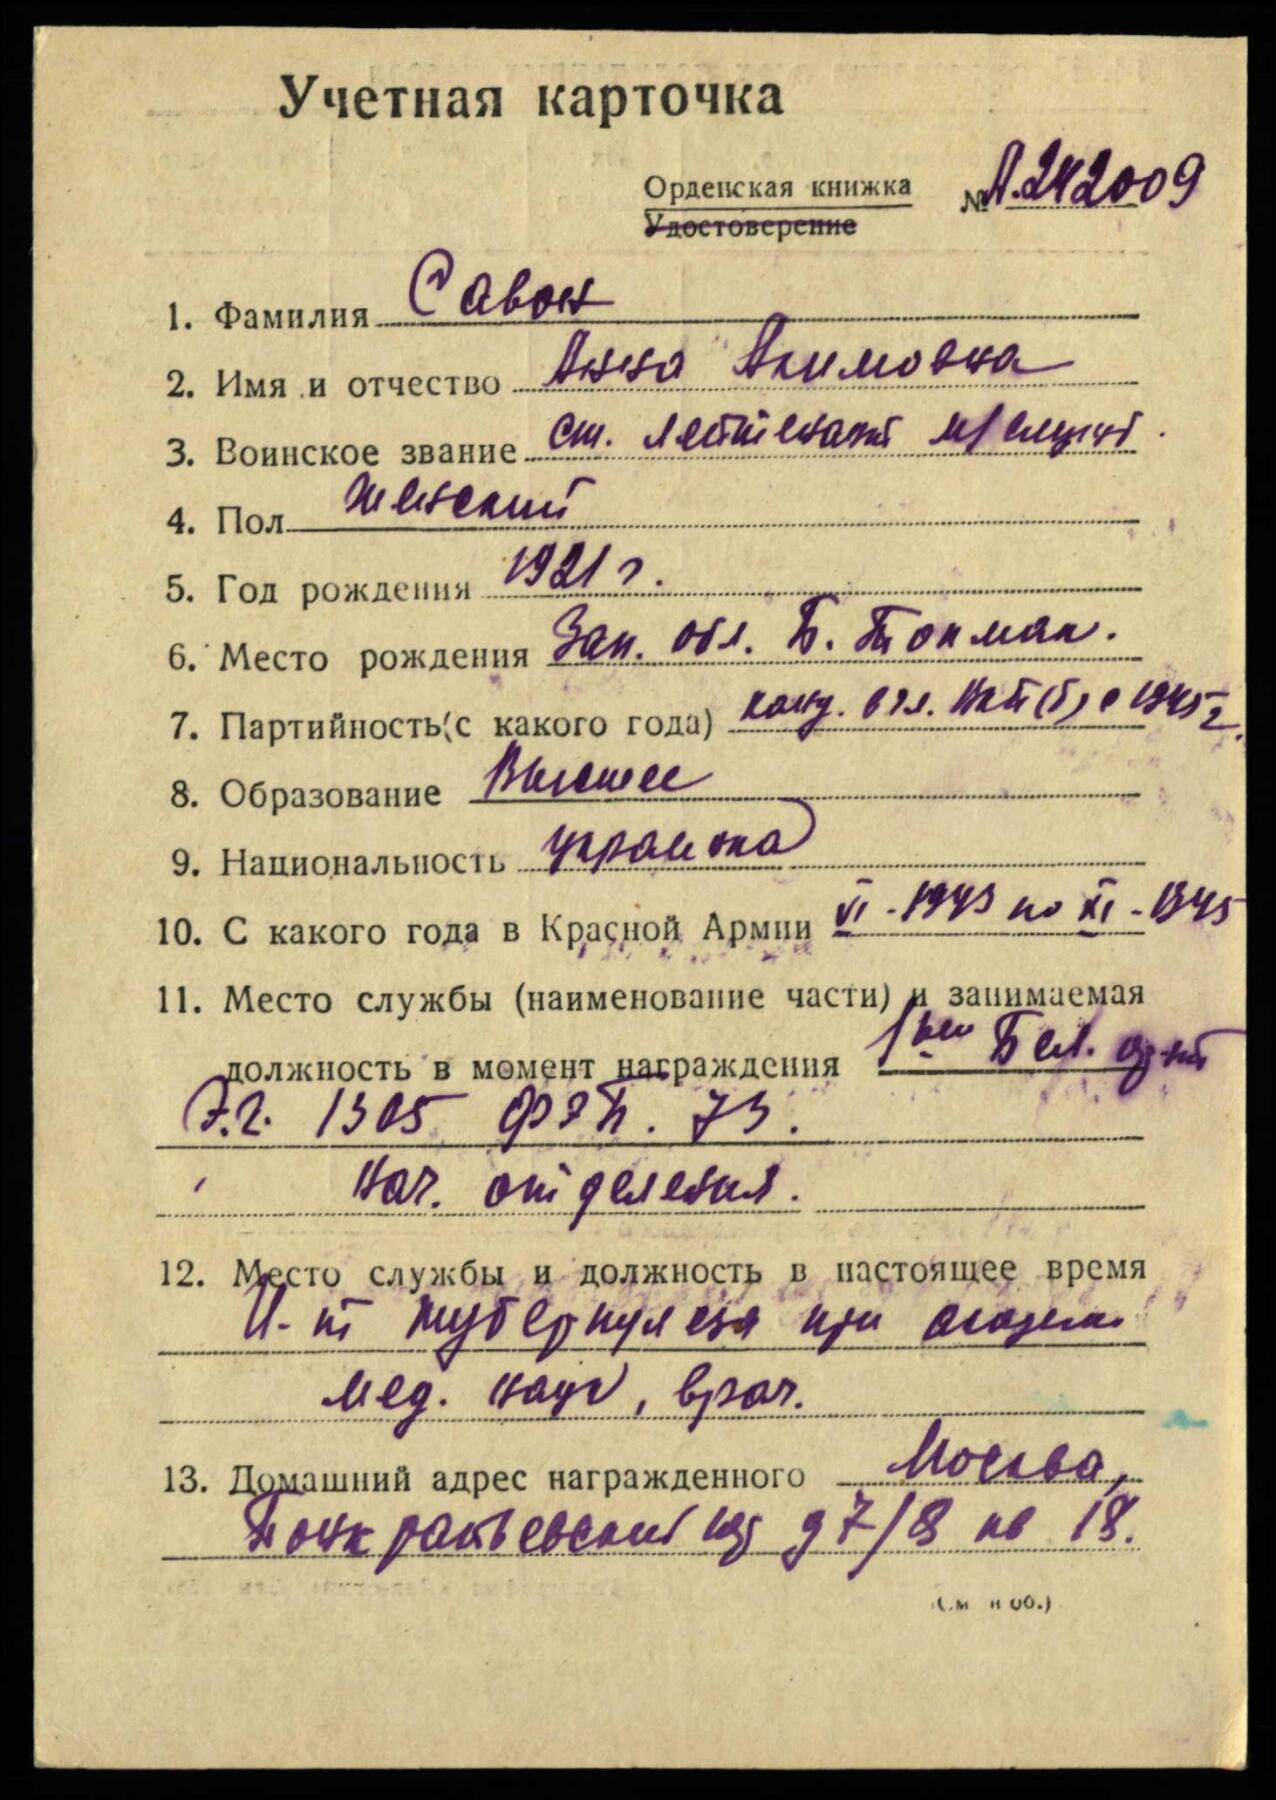 Учетная карточка
Орденская книжка № А.242009
Удостоверение
1. Фамилия Савон
2. Имя и отчество Анна Акимовна
3. Воинское звание ст. лейтенант м/служб.
4. Пол Женский
5. Год рождения 1921 г.
6. Место рождения Зап. обл. Б. Токмак.
7. Партийность (с какого года) канд. в чл. ВКП(б) с 1945 г.
8. Образование Высшее
9. Национальность украинка
10. С какого года в Красной Армии VI - 1943 по XI - 1945
11. Место службы (наименование части) и занимаемая
должность в момент награждения 1 Бел. фр-нт
Э.Г. 1305 ФЭП. 73.
Нач. отделения.
12. Место службы и должность в настоящее время
И-т туберкулеза при академ.
мед. наук, врач.
13. Домашний адрес награжденного Москва,
Панкратьевский пер д 7/8 кв 18.
(См н об.)